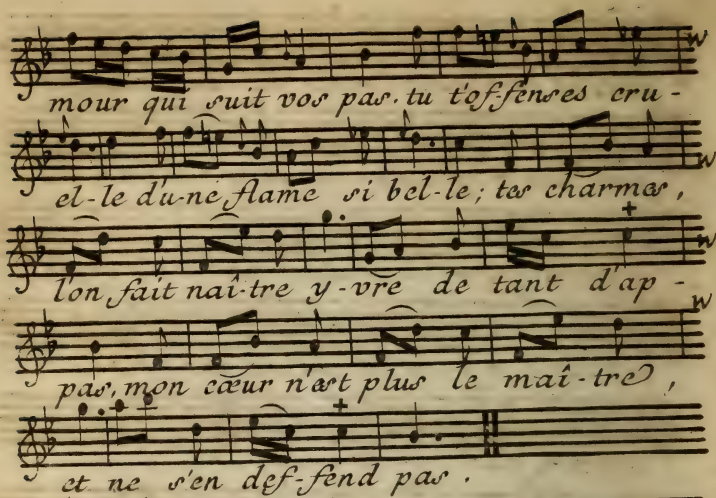 mour qui suit vos pas. tu t'of-fenses cru-
el-le d'u-ne flame si bel-le; tes charmes,
l'on fait naî-tre y-vre de tant d'ap-
pas, mon cœur n'est plus le maî-tre,
et ne s'en def-fend pas.